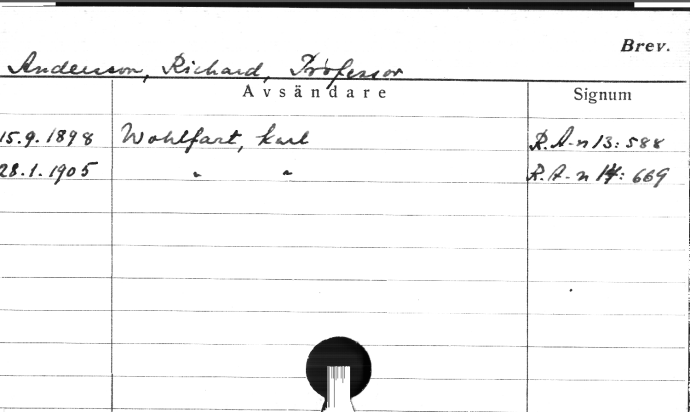 Brev.
Andersson, Richard, Professor
Avsändare Signum
15.9.1898 Wohlfart, Karl R.A-n 13:588
28.1.1905 " " R.A-n 14:669